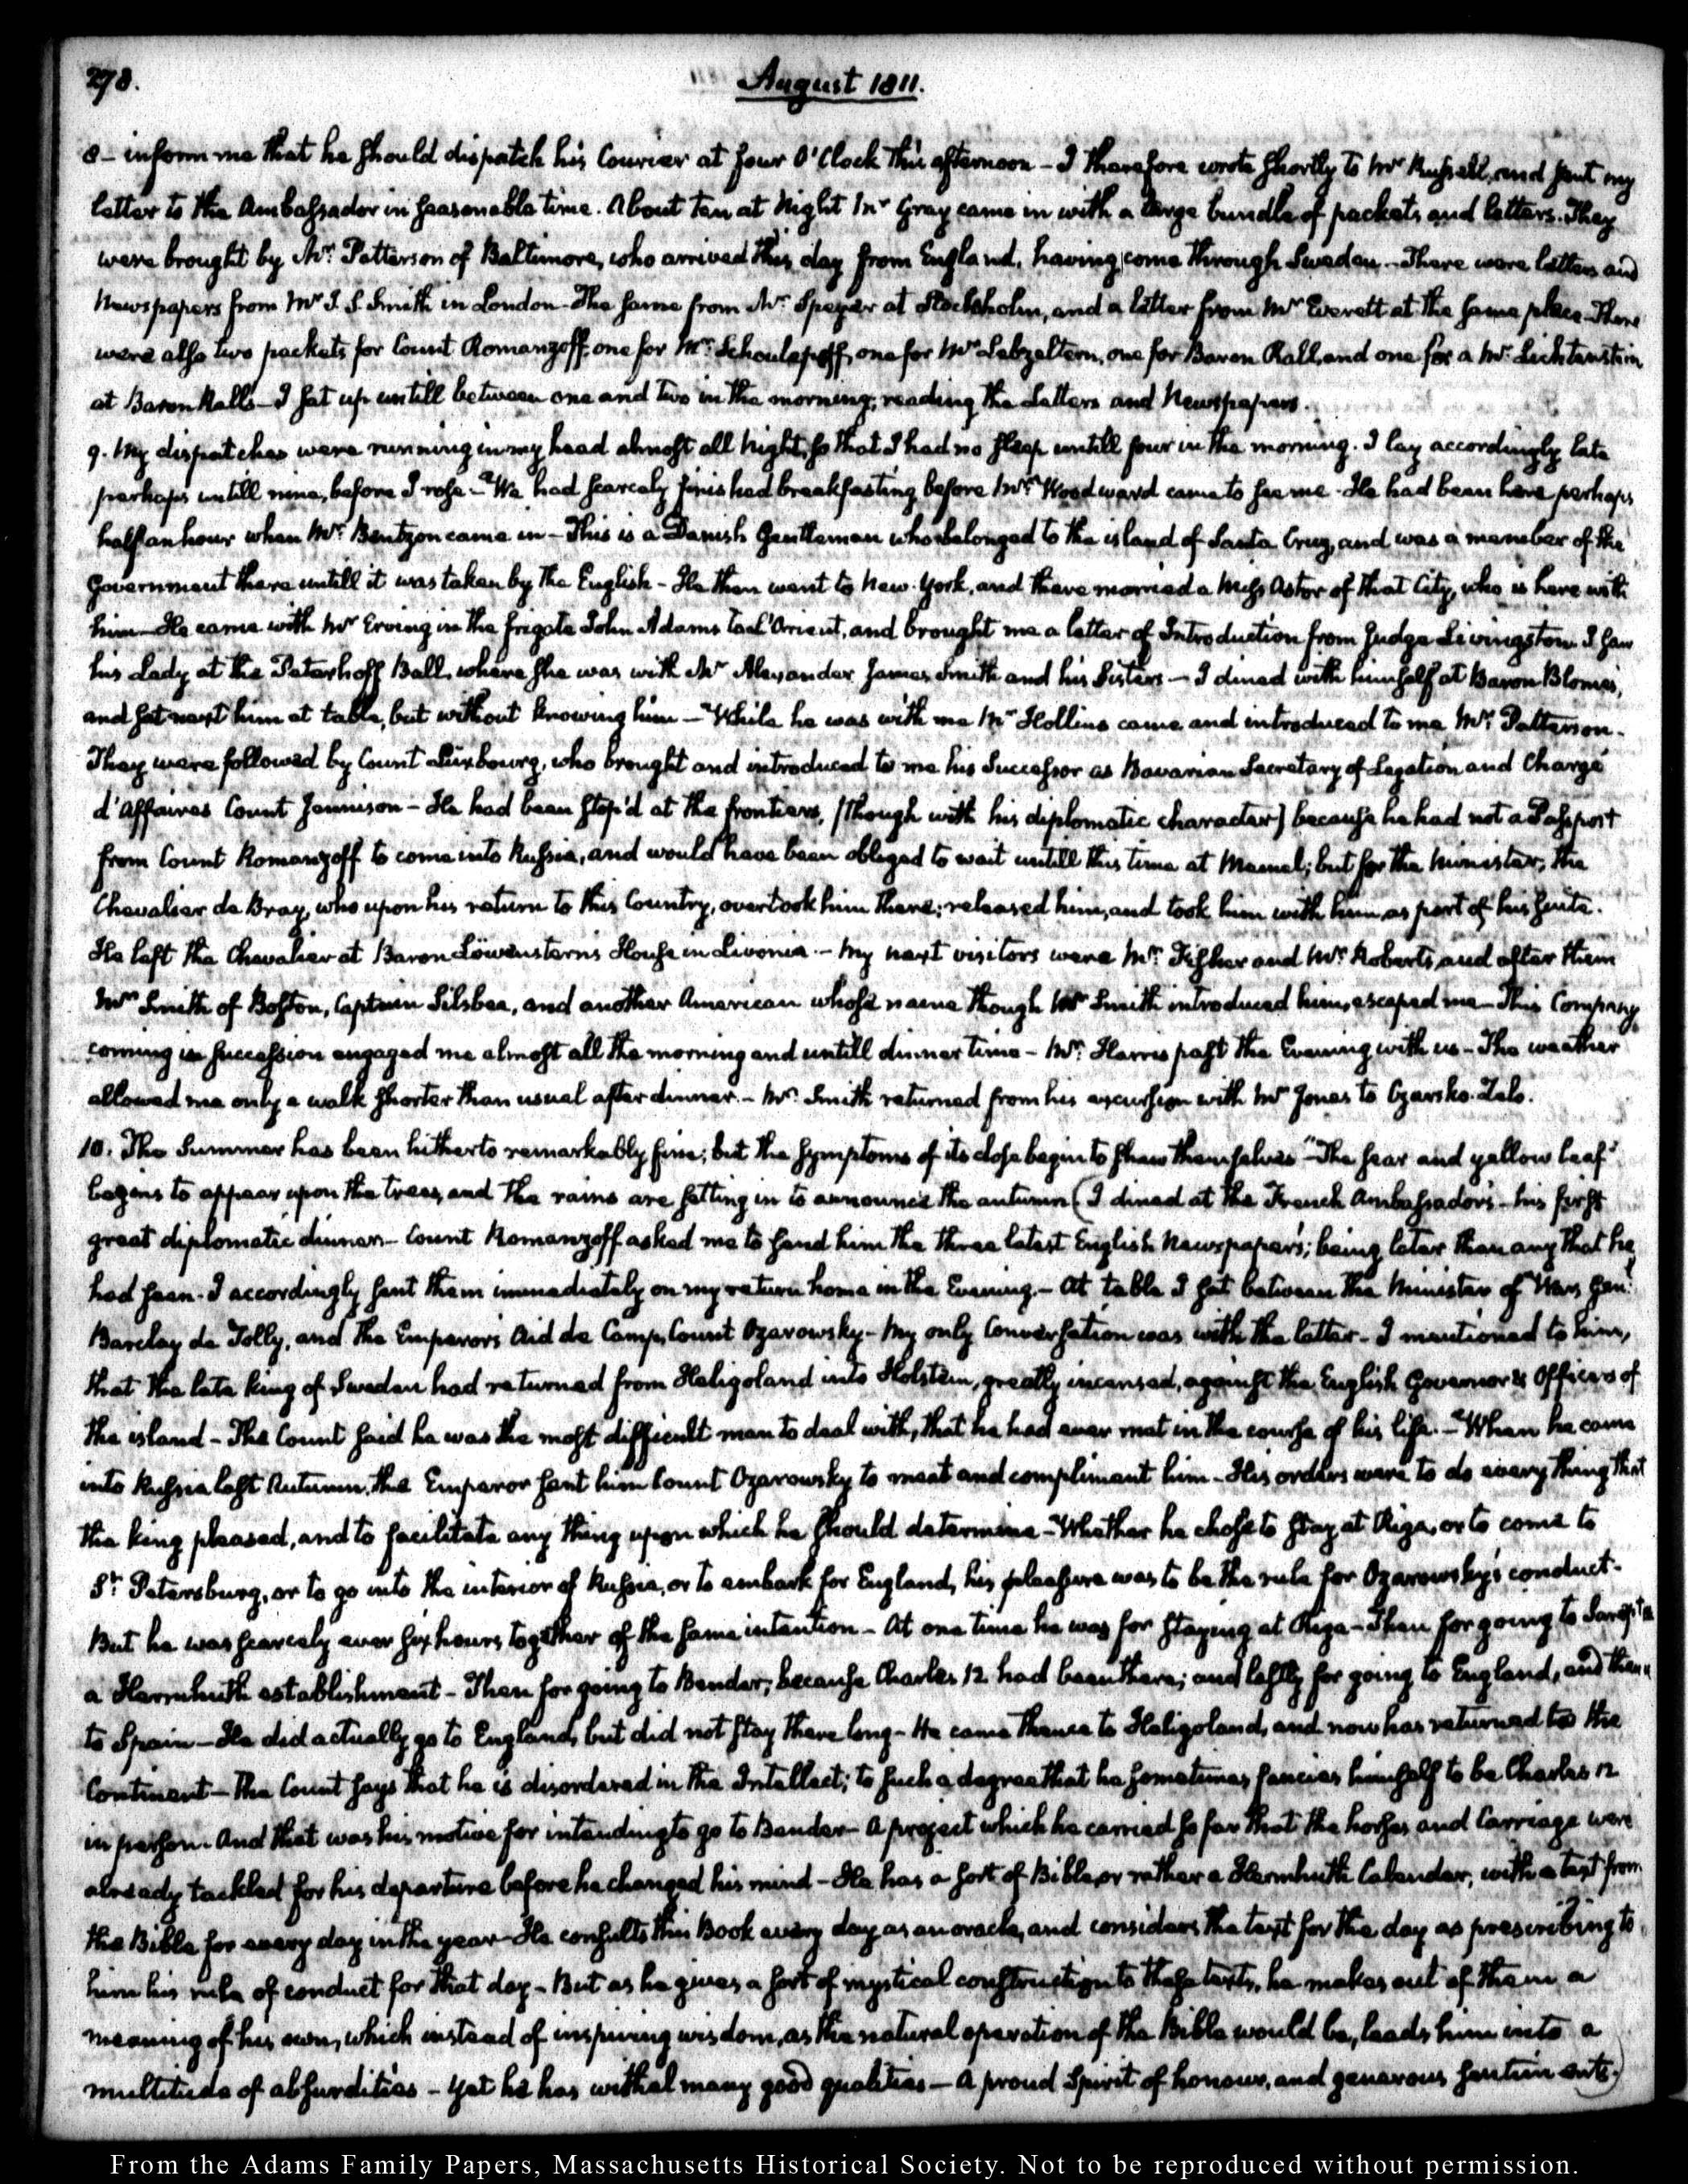 278.
August 1811.
8 – inform me that he should dispatch his Courier at four O'Clock this afternoon – I therefore wrote shortly to Mr. Russell, and sent my
letter to the Ambassador in seasonable time. About ten at Night Mr. Gray came in with a large bundle of packets and letters. They
were brought by Mr. Patterson of Baltimore, who arrived this day from England, having come through Sweden – There were letters and
Newspapers from Mr. J. S. Smith in London – The same from Mr. Speyer at Stockholm, and a letter from Mr. Everett at the same place – There
were also two packets for Count Romanzoff, one for Mr. Schoulapoff, one for Mr. Lebzeltern, one for Baron Rall, and one for a Mr. Lichtenstein
at Baron Ralls – I sat up untill between one and two in the morning, reading the Letters and Newspapers.
9. My dispatches were running in my head almost all Night, so that I had no sleep untill four in the morning. I lay accordingly late
perhaps untill nine, before I rose – We had scarcely finished breakfasting before Mr. Woodward came to see me – He had been here perhaps
half an hour when Mr. Bentzon came in – This is a Danish Gentleman who belonged to the island of Santa Cruz, and was a member of the
Government there untill it was taken by the English – He then went to New-York, and there married a Miss Astor of that City, who is here with
him – He came with Mr. Erving in the frigate John Adams to L'Orient, and brought me a letter of Introduction from Judge Livingston. I saw
his Lady at the Peterhoff Ball, where she was with Mr. Alexander James Smith and his Sisters – I dined with himself at Baron Blome's,
and sat next him at table, but without knowing him – While he was with me Mr. Hollins came and introduced to me Mr. Patterson.
They were followed by Count Luxbourg, who brought and introduced to me his Successor as Bavarian Secretary of Legation and Chargé
d'Affaires Count Jennison – He had been stop'd at the frontiers, (though with his diplomatic character) because he had not a Passport
from Count Romanzoff to come into Russia, and would have been obliged to wait untill this time at Memel; but for the Minister, the
Chevalier de Bray, who upon his return to this Country, overtook him there; released him, and took him with him, as part of his suite.
He left the Chevalier at Baron Löwenstern's House in Livonia – My next visitors were Mr. Fisher and Mr. Roberts, and after them
Mr. Smith of Boston, Captain Silsbee, and another American whose name though Mr. Smith introduced him, escaped me – This Company,
coming in succession engaged me almost all the morning and untill dinner time – Mr. Harris past the Evening with us – The weather
allowed me only a walk shorter than usual after dinner. – Mr. Smith returned from his excursion with Mr. Jones to Czarsko-Zelo.
10. The Summer has been hitherto remarkably fine; but the symptoms of its close begin to shew themselves "The sear and yellow leaf"
begins to appear upon the trees, and the rains are setting in to announce the autumn (I dined at the French Ambassador's – his first
great diplomatic dinner – Count Romanzoff asked me to send him the three latest English Newspapers; being later than any that he
had seen – I accordingly sent them immediately on my return home in the Evening – At table I sat between the Minister of War, Genl.
Barclay de Tolly, and the Emperor's Aid de Camp, Count Ozarowsky – My only Conversation was with the latter – I mentioned to him,
that the late king of Sweden had returned from Heligoland into Holstein, greatly incensed, against the English Governor & Officers of
the island – The Count said he was the most difficult man to deal with, that he had ever met in the course of his life. – When he came
into Russia last Autumn, the Emperor sent him Count Ozarowsky to meet and compliment him – His orders were to do every thing that
the king pleased, and to facilitate any thing upon which he should determine – Whether he chose to stay at Riga, or to come to
St. Petersburg, or to go into the interior of Russia, or to embark for England, his pleasure was to be the rule for Ozarowsky's conduct –
But he was scarcely ever six hours together of the same intention – At one time he was for staying at Riga – Then for going to Sarepta
a Herrnhuth establishment – Then for going to Bender, because Charles 12 had been there; and lastly for going to England, and thence
to Spain – He did actually go to England, but did not stay there long – He came thence to Heligoland, and now has returned to the
Continent – The Count says that he is disordered in the Intellect; to such a degree that he sometimes fancies himself to be Charles 12
in person – And that was his motive for intending to go to Bender – A project which he carried so far that the horses and Carriage were
already tackled for his departure before he changed his mind – He has a sort of Bible, or rather a Herrnhuth Calendar, with a text from
the Bible for every day in the year – He consults this Book every day as an oracle, and considers the text for the day as prescribing to
him his rule of conduct for that day – But as he gives a sort of mystical construction to these texts, he makes out of them a
meaning of his own, which instead of inspiring wisdom, as the natural operation of the Bible would be, leads him into a
multitude of absurdities – Yet he has withal many good qualities – A proud Spirit of honour, and generous sentiments.)
From the Adams Family Papers, Massachusetts Historical Society. Not to be reproduced without permission.